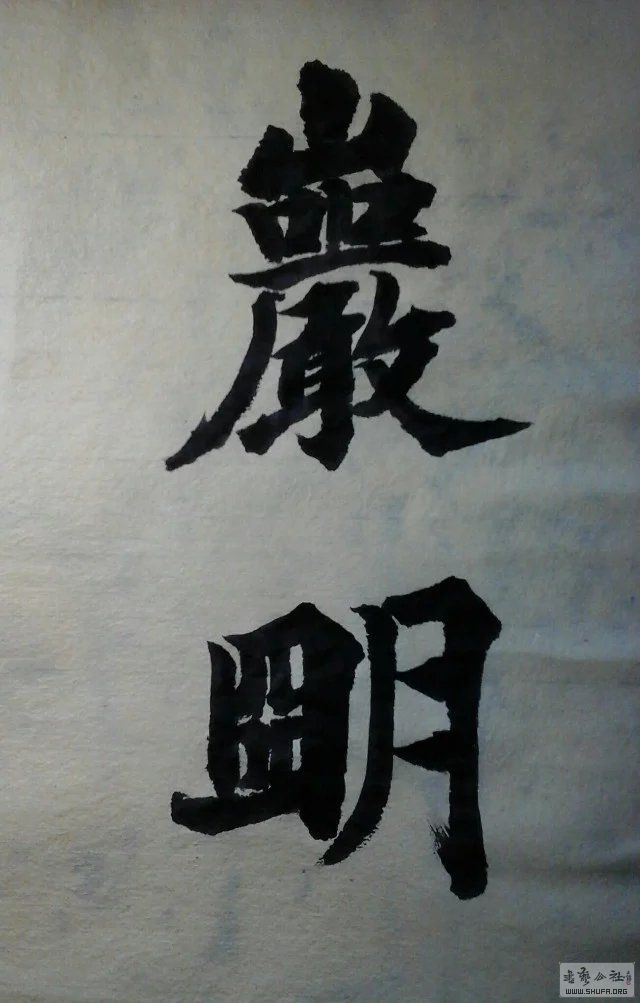 巖
朙
書藝公社
WWW.SHUFA.ORG